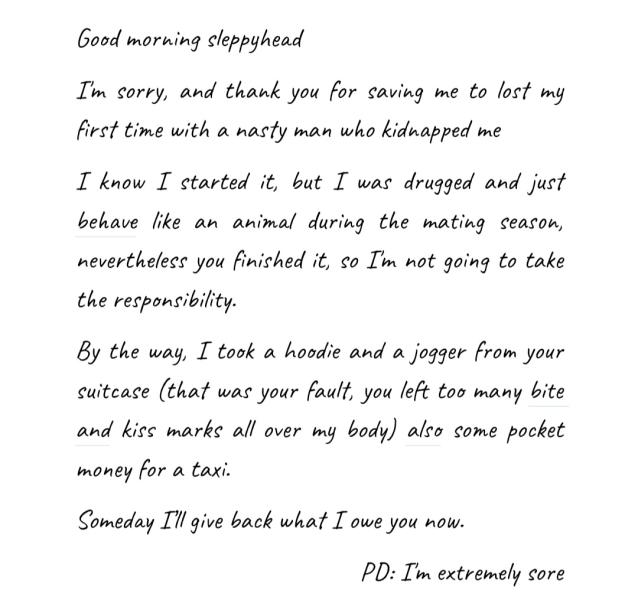 Good morning sleppyhead
I'm sorry, and thank you for saving me to lost my
first time with a nasty man who kidnapped me
I know I started it, but I was drugged and just
behave like an animal during the mating season,
nevertheless you finished it, so I'm not going to take
the responsibility.
By the way, I took a hoodie and a jogger from your
suitcase (that was your fault, you left too many bite
and kiss marks all over my body) also some pocket
money for a taxi.
Someday I'll give back what I owe you now.
PD: I'm extremely sore